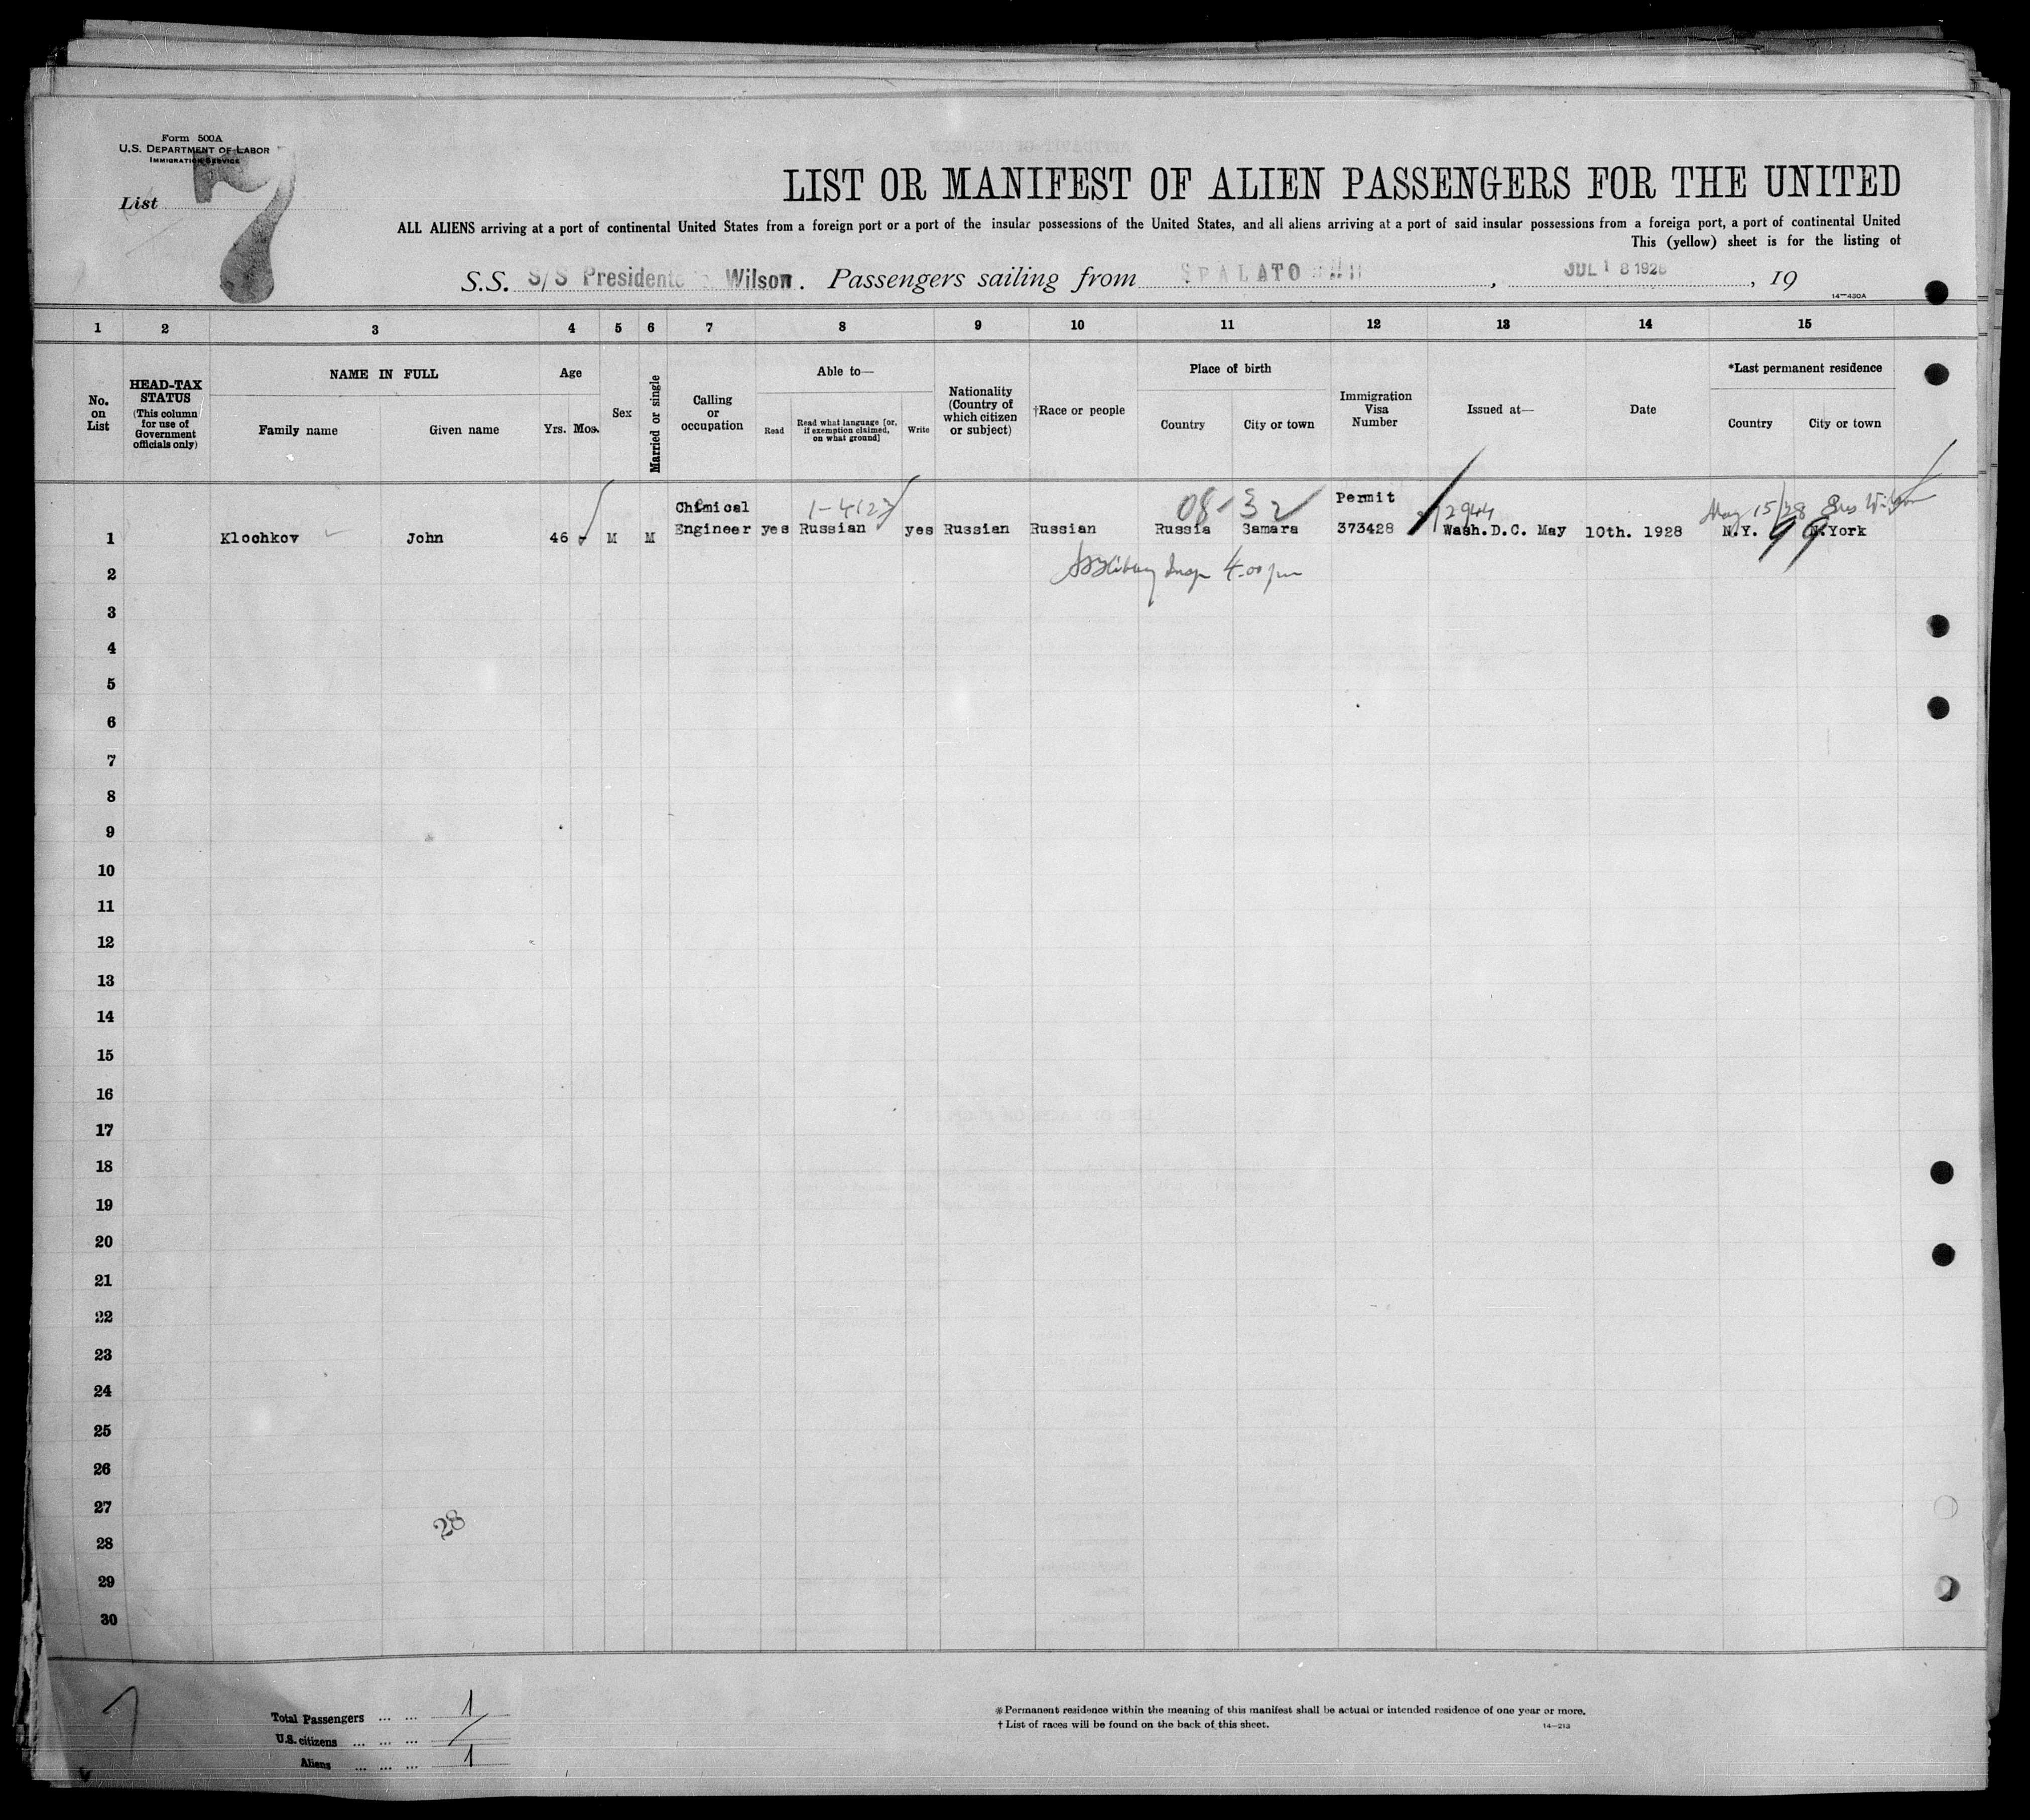 Form 500A
U.S. DEPARTMENT OF LABOR
IMMIGRATION SERVICE
List 7
LIST OR MANIFEST OF ALIEN PASSENGERS FOR THE UNITED
ALL ALIENS arriving at a port of continental United States from a foreign port or a port of the insular possessions of the United States, and all aliens arriving at a port of said insular possessions from a foreign port, a port of continental United
This (yellow) sheet is for the listing of
S.S. S/S Presidente Wilson. Passengers sailing from SPALATO, JUL 18 1928, 19
14—430A
1 2 3 4 5 6 7 8 9 10 11 12 13 14 15
No. on List
HEAD-TAX STATUS (This column for use of Government officials only)
NAME IN FULL
Family name Given name
Age
Yrs. Mos.
Sex
Married or single
Calling or occupation
Able to—
Read Read what language [or, if exemption claimed, on what ground] Write
Nationality (Country of which citizen or subject)
†Race or people
Place of birth
Country City or town
Immigration Visa Number
Issued at—
Date
*Last permanent residence
Country City or town
Chimical Permit 12944 May 15/28 Pres Wilson
08-32
1 Klochkov John 46 - M M Engineer yes Russian yes Russian Russian Russia Samara 373428 Wash.D.C. May 10th. 1928 N.Y. N.York
99
2 4.00 pm
3
4
5
6
7
8
9
10
11
12
13
14
15
16
17
18
19
20
21
22
23
24
25
26
27
28
28
29
30
Total Passengers ... ... 1
U.S. citizens ... ... ... /
Aliens ... ... ... 1
* Permanent residence within the meaning of this manifest shall be actual or intended residence of one year or more.
† List of races will be found on the back of this sheet.
14—213